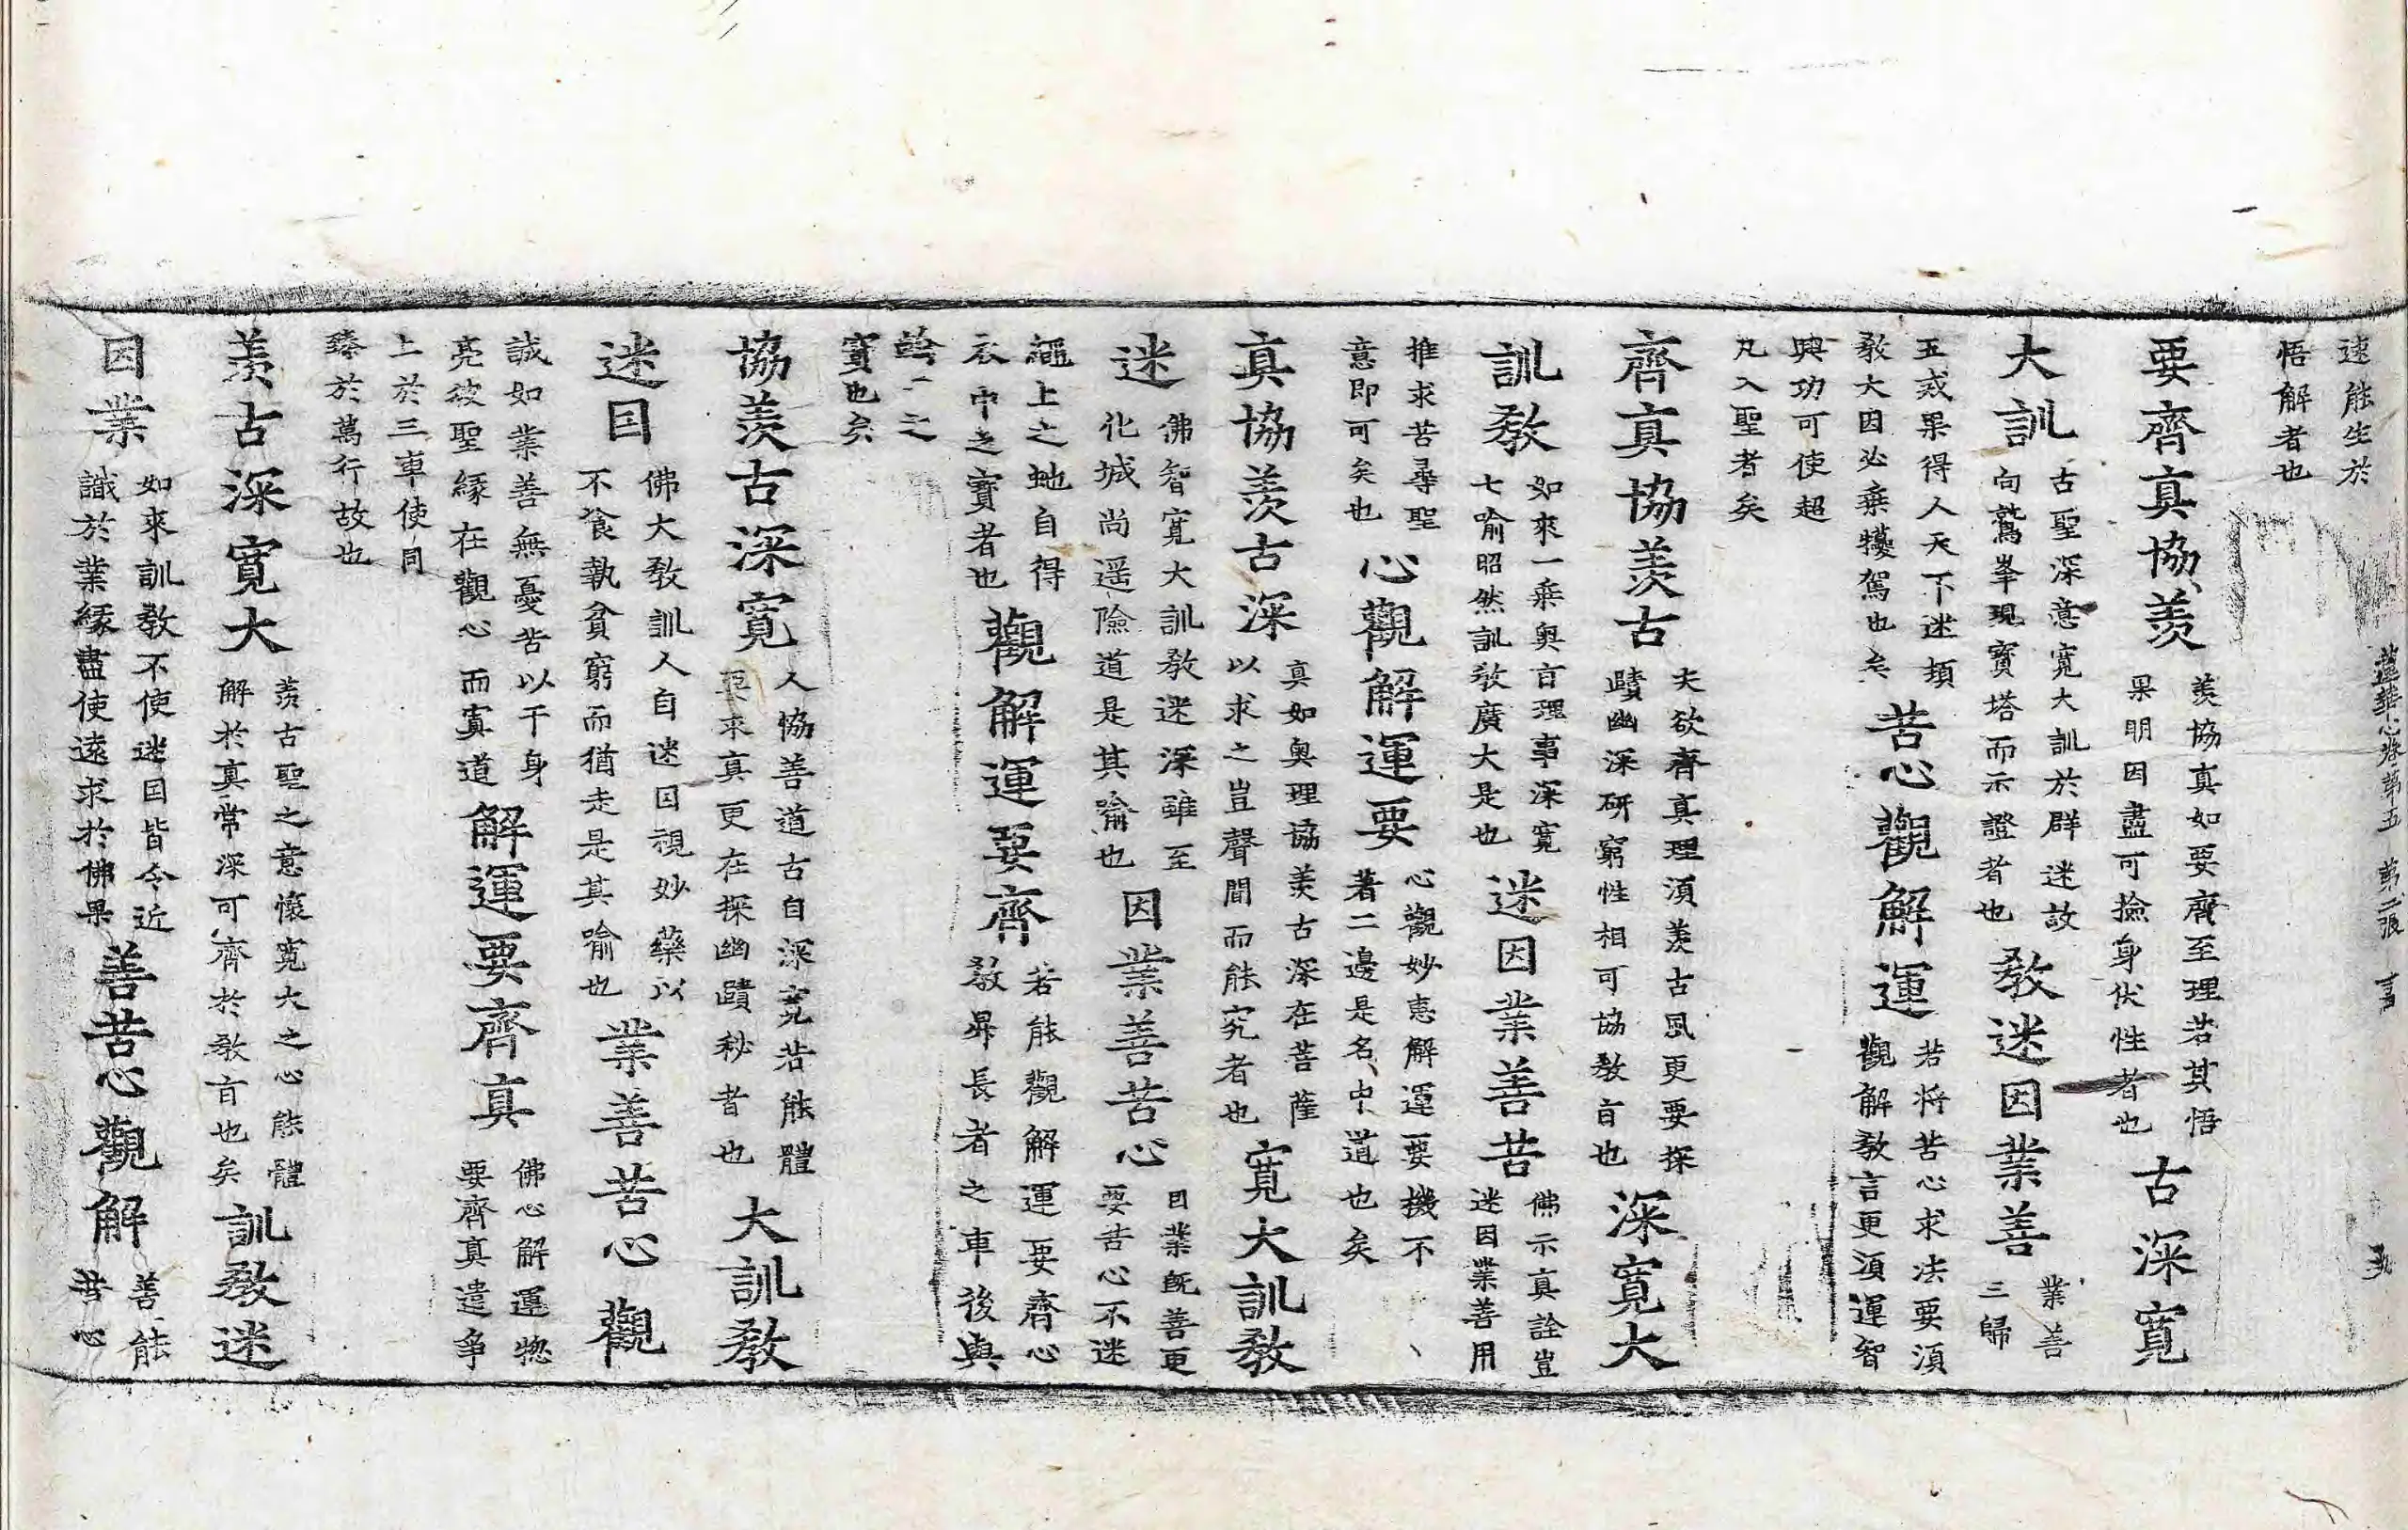 速能生於
悟解者也
蓮華心卷第五 第二張
要齊真協羨
羨協真如要齊至理若其悟
果明因盡可撿身伏性者也
古深寬
大訓
古聖深意寬大訓於群迷故
向鷲峯現寶塔而示證者也
教迷因業善
業善
三歸
五戒果得人天下迷類
教大因必乘犢駕也矣
苦心觀解運
若將苦心求法要須
觀解教言更須運智
興功可使超
凡入聖者矣
齊真協羨古
夫欲齊真理須羨古風更要探
賾幽深研窮性相可協教旨也
深寬大
訓教
如來一乘奧旨理事深寬
七喻昭然訓教廣大是也
迷因業善苦
佛示真詮豈
迷因業善用
推求苦尋聖
意即可矣也
心觀解運要
心觀妙惠解運要機不
著二邊是名中道也矣
真協羨古深
真如奧理協羨古深在菩薩
以求之豈聲聞而能究者也
寬大訓教
迷
佛智寬大訓教迷深雖至
化城尚遥險道是其喻也
因業善苦心
因業旣善更
要苦心不迷
繩上之虵自得
衣中之寶者也
觀解運要齊
若能觀解運要齊心
教昇長者之車後與
之
寶也矣
協羨古深寬
人協善道古自深寬若能體
求真更在探幽賾秘者也
大訓教
迷因
佛大教訓人自迷因視妙藥以
不飡執貧窮而猶走是其喻也
業善苦心觀
誠如業善無憂苦以干身
亮彼聖緣在觀心而寘道
解運要齊真
佛心解運惣
要齊真遣爭
上於三車使同
臻於萬行故也
羨古深寬大
羨古聖之意懷寬大之心能體
解於真常深可齊於教旨也矣
訓教迷
因業
如來訓教不使迷因皆令近
識於業緣盡使遠求於佛果
善苦心觀解
善能
苦心